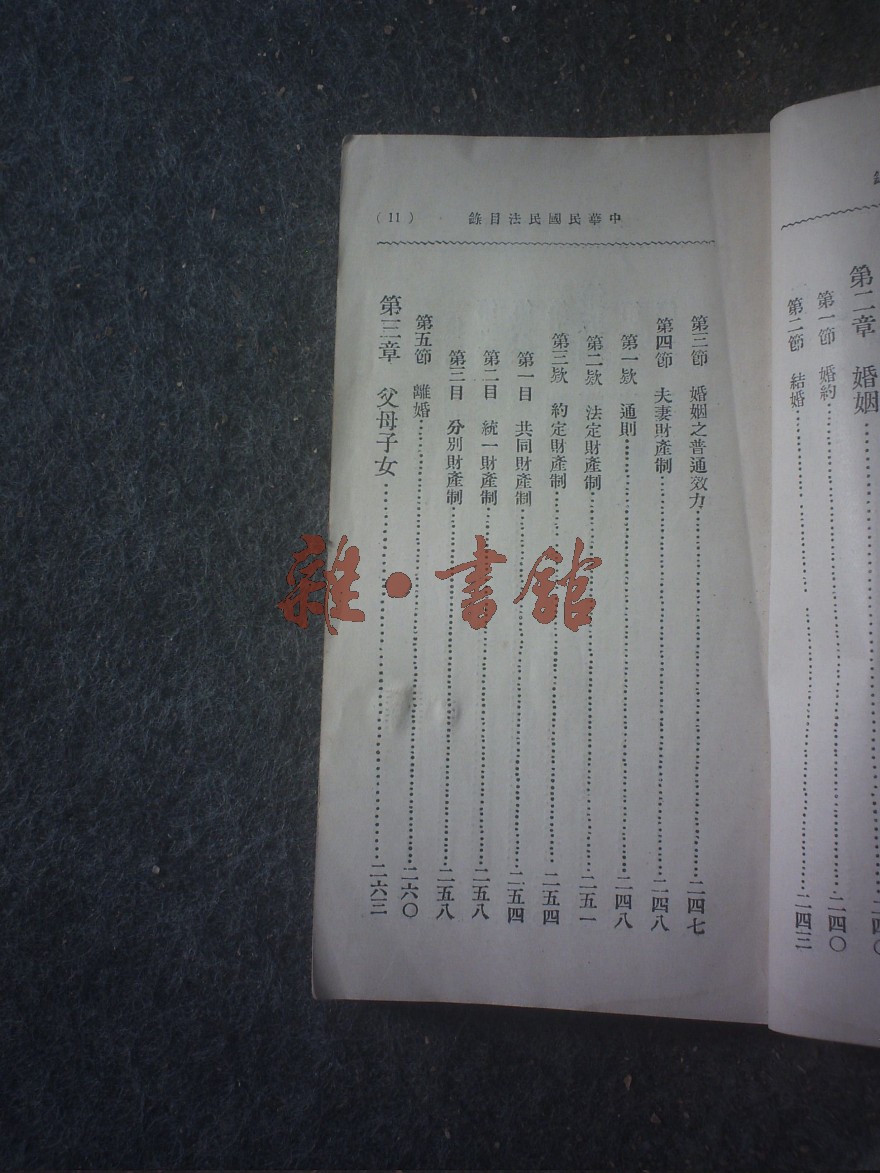 第二章　婚姻……二四〇
第一節　婚約……二四〇
第二節　結婚……二四三
中華民國民法目錄　(11)
第三節　婚姻之普通效力……二四七
第四節　夫妻財產制……二四八
第一欵　通則……二四八
第二欵　法定財產制……二五一
第三欵　約定財產制……二五四
第一目　共同財產制……二五四
第二目　統一財產制……二五八
第三目　分別財產制……二五八
第五節　離婚……二六〇
第三章　父母子女……二六三
雜・書館